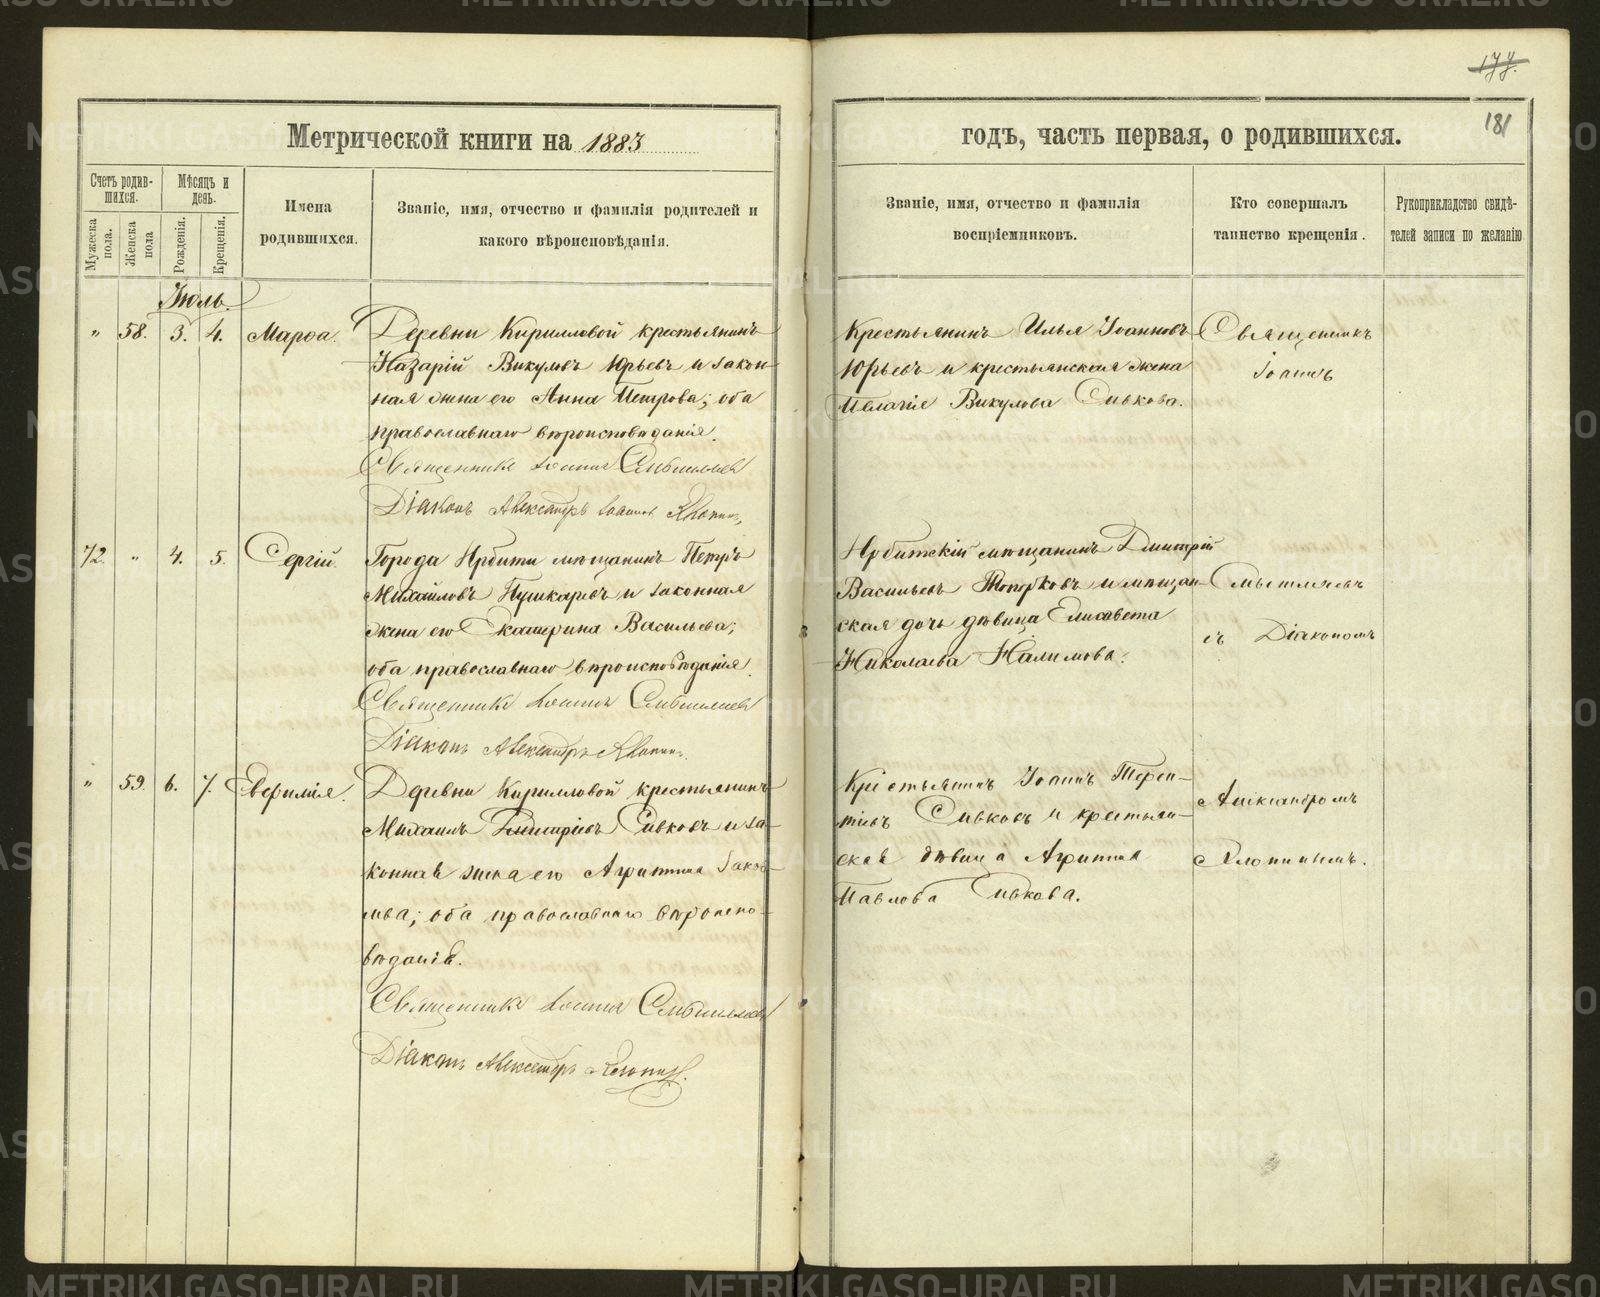 177.
181
Метрической книги на 1883
годъ, часть первая, о родившихся.
Счетъ родив-
шихся.
Мѣсяцъ и
день.
Мужеска
пола.
Женска
пола
Рожденія.
Крещенія.
Имена
родившихся.
Званіе, имя, отчество и фамилія родителей и
какого вѣроисповѣданія.
Званіе, имя, отчество и фамилія
воспріемниковъ.
Кто совершалъ
таинство крещенія.
Рукоприкладство свидѣ-
телей записи по желанію
Іюль.
" 58. 3. 4. Марѳа.
Деревни Кирилловой крестьянинъ
Назарій Викуловъ Юрьевъ и закон-
ная жена его Анна Петрова; оба
православнаго вѣроисповѣданія.
Священникъ Іоаннъ
Діаконъ Александръ
Крестьянинъ Илья Іоанновъ
Юрьевъ и крестьянская жена
Пелагія Викулова Сивкова.
Священникъ
Іоаннъ
72. " 4. 5. Сергій.
Города Ирбити мѣщанинъ Петръ
Михайловъ Пушкаревъ и законная
жена его Екатерина Васильева;
оба православнаго вѣроисповѣданія.
Священникъ Іоаннъ
Діаконъ Александръ
Ирбитскій мѣщанинъ Дмитрій
Васильевъ Топорковъ и мѣщан-
ская дочь дѣвица Елисавета
Николаева Налимова.
съ Діакономъ
" 59. 6. 7. Евфимія.
Деревни Кирилловой крестьянинъ
Михаилъ Димитріевъ Сивковъ и за-
конная жена его Агрипина Іаков-
лева; оба православнаго вѣроиспо-
вѣданія.
Священникъ Іоаннъ
Діаконъ Александръ
Крестьянинъ Іоаннъ Терен-
тіевъ Сивковъ и крестьян-
ская дѣвица Агрипина
Павлова Сивкова.
Александромъ
METRIKI.GASO-URAL.RU